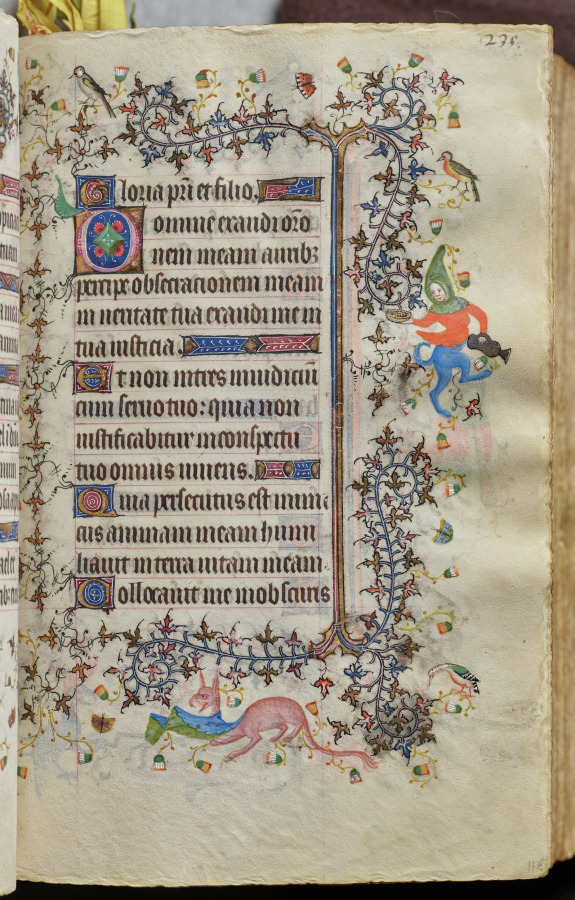 235.
Gloria pri et filio.
Domine exaudi oro
nem meam auribꝫ
percipe obsecrationem meam
in ueritate tua exaudi me in
tua iusticia.
Et non intres in iudiciū
cum seruo tuo: quia non
iustificabitur in conspectu
tuo omnis uiuens.
Quia persecutus est inimi
cus animam meam humi
liauit in terra uitam meam
Collocauit me in obscuris
118